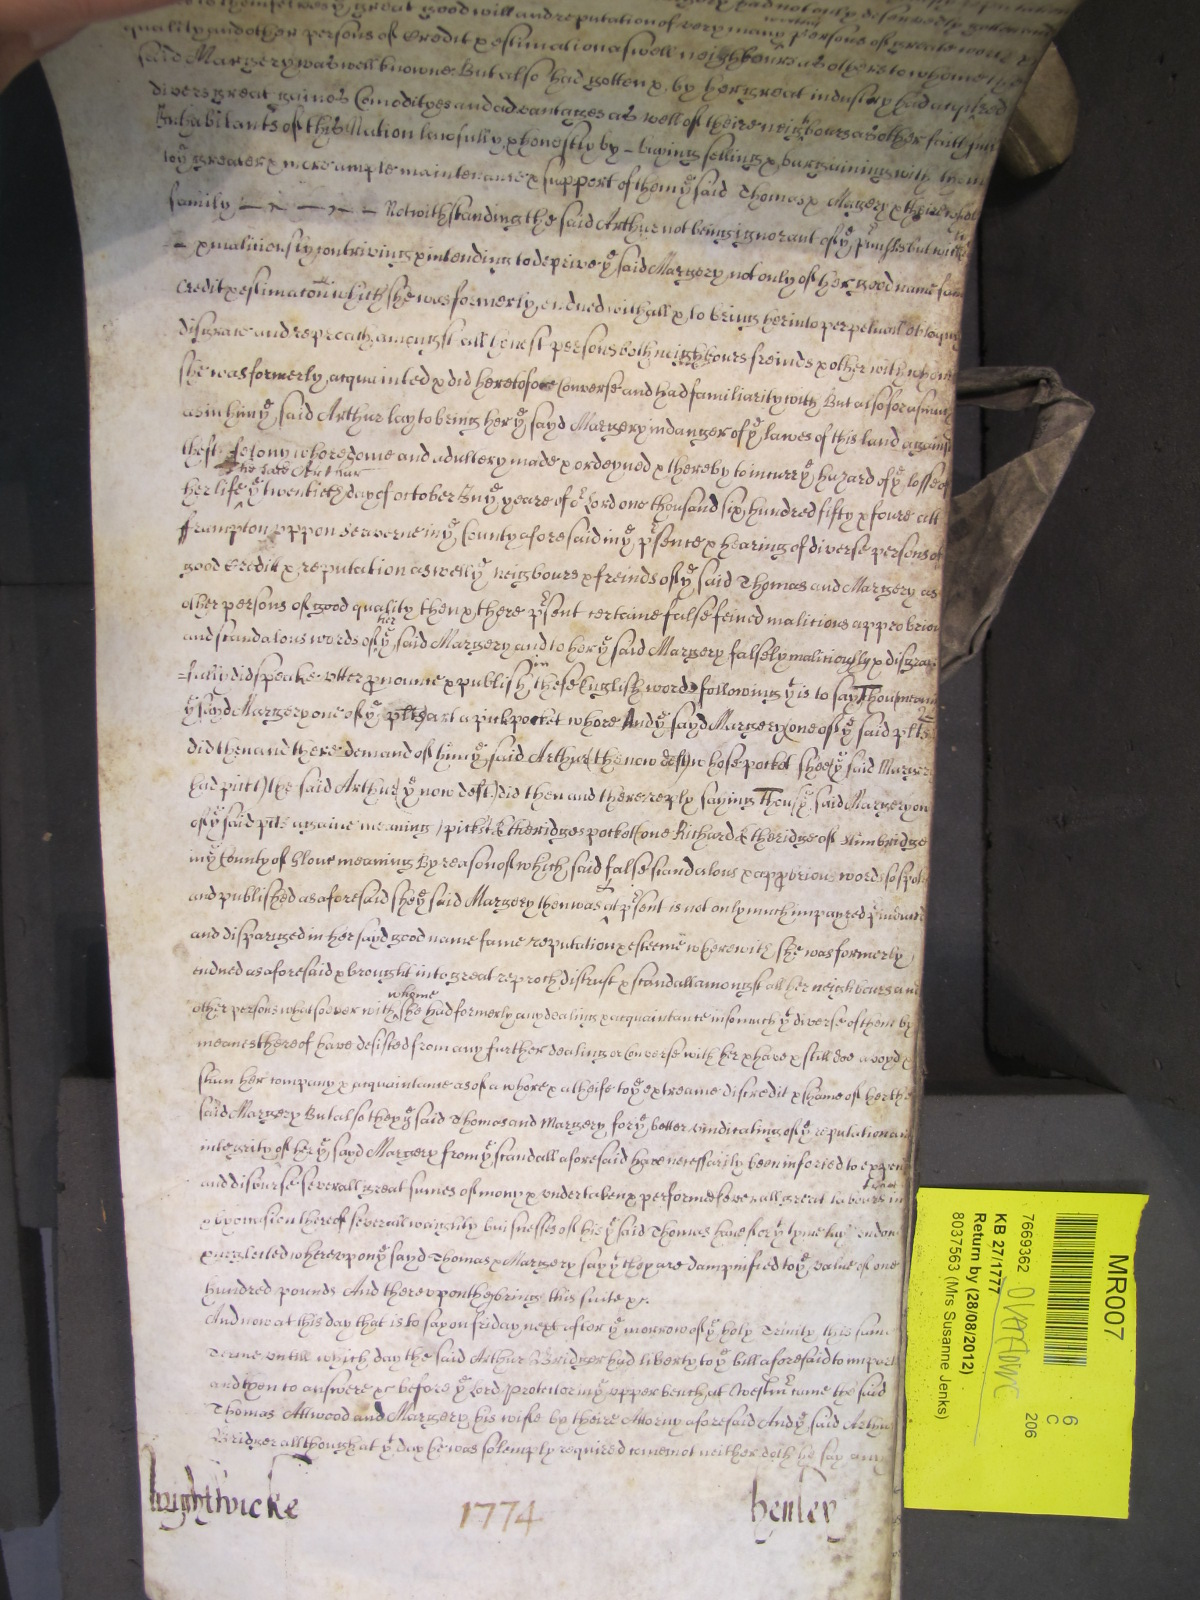 to themselves yͤ great good will and reputation of very many persons of greate worth &
quality and other persons of Credit & estimation aswell neighbours as others to whome the
said Margery was well knowne. But also had gotten & by her great industry had acquired
divers great gaines Comodityes and advantages as well of theire neighbours as other faithfull
Inhabitants of this Nation lawfully & honestly by - buying selling & bargaining with them
to yͤ greater & more ample maintenance & support of them yͤ said Thomas & Margery & theire whole
family Notwithstanding the said Arthur not being ignorant of yͤ pͬmisses but with
- & malitiously contriving & intending to deprive yͤ said Margery not only of her good name fame
Credit & estimacon which she was formerly endued withall & to bring her into perpetuall obloquy
disgrace and reproach amongst all honest persons both neighbours freinds & other with whom
she was formerly acquainted & did heretofore Converse and had familiarity with But also forasmuch
as in him yͤ said Arthur lay to bring her yͤ sayd Margery in danger of yͤ lawes of this land against
theft felony whoredome and adultery made & ordeyned & thereby to incurr yͤ hazard of yͤ losse of
he the said Arthur
her life yͤ twentieth day of October In yͤ yeare of oͬ Lord one thousand six hundred fifty & foure att
Frampton uppon Seaverne in yͤ County aforesaid in yͤ pͬsence & hearing of diverse persons of
good Credit & reputation aswell yͤ neigbours & freinds of yͤ said Thomas and Margery as
other persons of good quality then & there pͬsent certaine false feined malitious approbrious
her
and scandalous words of yͤ said Margery and to her yͤ said Margery falsely malitiously & disgrace
in
=fully did speake utter pnounce & publish these English words following yͭ is to say Thou meaning
yͤ sayd Margery one of yͤ pltˢ art a pickpocket whore And yͤ sayd Margery (one of yͤ said pltˢ)
did then and there demand of him yͤ said Arthur (the now deft) whose pocket shee yͤ said Margery
had pickt) the said Arthur (yͤ now deft) did then and there reply saying Thou (yͤ said Margery one
of yͤ said pltˢ againe meaning) pickt Etheridges pocket (one Richard Etheridge of Slimbridge
in yͤ County of Glouc meaning By reason of which said false scandalous & apprbrious words so spoken
and published as aforesaid shee yͤ said Margery then was & at pͬsent is not only much impayred pͬiudiced
and disparaged in her sayd good name fame reputation & esteeme wherewith she was formerly
endued as aforesaid & brought into great reproch distrust & scandall amongst all her neighbours and
whome
other persons whatsoever with she had formerly any dealing & acquaintance insomuch yͭ diverse of them by
meanes thereof have desisted from any further dealing or Converse with her & have & still doe avoyd &
shun her company & acquaintance as of a whore & a theife to yͤ extreame discredit & shame of her the
said Margery But also they yͤ said Thomas and Margery for yͤ better vindicating of yͤ reputation and
integrity of her yͤ sayd Margery from yͤ scandall aforesaid have necessarily been inforced to expend
and disburse severall great sumes of mony & undertaken & performed severall great labours in
& by occasion thereof severall waighty buisnesses of his yͤ said Thomas have for yͤ tyme lay undone
& neglected whereupon yͤ sayd Thomas & Margery say yͭ they are dampnified to yͤ value of one
hundred pounds And thereupon they bring this suite &c.
And now at this day that is to say on friday next after yͤ morrow of yͤ holy Trinity this same
Terme untill which day the said Arthur Bridger had liberty to yͤ bill aforesaid to imparl
and then to answere &c before yͤ Lord Protector in yͤ upper bench at Westmͬ came the said
Thomas Attwood and Margery his wife by theire Attorny aforesaid And yͤ said Arthur
Bridger allthough at yͭ day he was solemply required came not neither doth he say any
Wightwicke 1774 henley
MR007
7669362 OVERTONE
6
C
206
KB 27/1777
Return by (28/08/2012)
8037563 (Mrs Susanne Jenks)